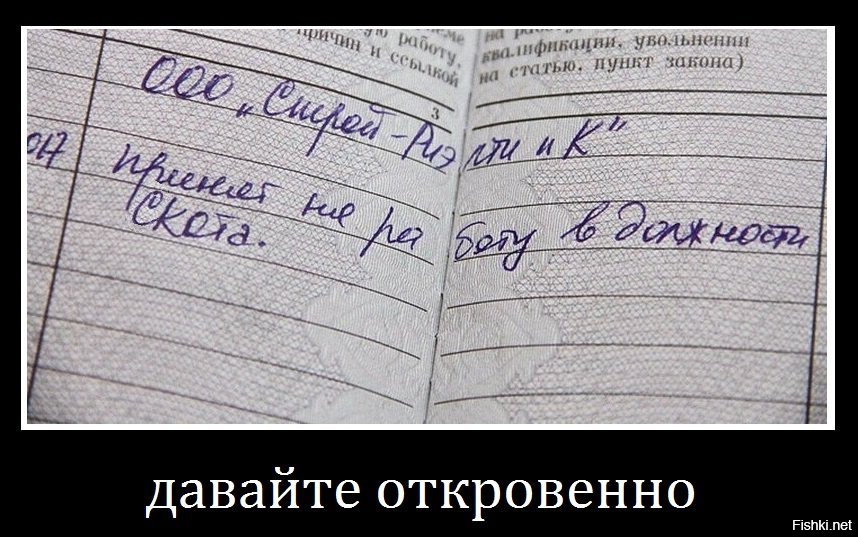 ую работу,
причин и ссылкой
на работу
квалификации, увольнении
на статью, пункт закона)
3
ООО „Строй-Риэлти и К"
017
принят на работу в должности
Скота.
давайте откровенно
Fishki.net